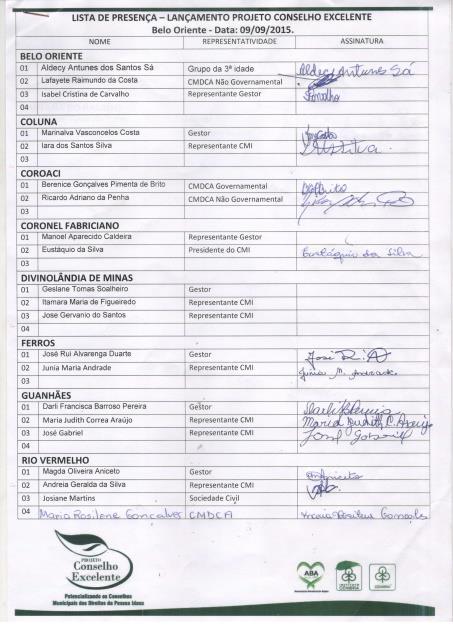 LISTA DE PRESENÇA – LANÇAMENTO PROJETO CONSELHO EXCELENTE
Belo Oriente - Data: 09/09/2015.
NOME REPRESENTATIVIDADE ASSINATURA
BELO ORIENTE
01 Aldecy Antunes dos Santos Sá Grupo da 3ª idade Aldecy Antunes Sá
02 Lafayete Raimundo da Costa CMDCA Não Governamental
03 Isabel Cristina de Carvalho Representante Gestor
04
COLUNA
01 Marinalva Vasconcelos Costa Gestor
02 Iara dos Santos Silva Representante CMI
03
COROACI
01 Berenice Gonçalves Pimenta de Brito CMDCA Governamental
02 Ricardo Adriano da Penha CMDCA Não Governamental
03
CORONEL FABRICIANO
01 Manoel Aparecido Caldeira Representante Gestor
02 Eustáquio da Silva Presidente do CMI Eustáquio da Silva
03
DIVINOLÂNDIA DE MINAS
01 Geslane Tomas Soalheiro Gestor
02 Itamara Maria de Figueiredo Representante CMI
03 Jose Gervanio do Santos Representante CMI
04
FERROS
01 José Rui Alvarenga Duarte Gestor José R. A
02 Junia Maria Andrade Representante CMI Junia M. Andrade
03
GUANHÃES
01 Darli Francisca Barroso Pereira Gestor
02 Maria Judith Correa Araújo Representante CMI Maria Judith C. Araujo
03 José Gabriel Representante CMI José Gabriel
04
RIO VERMELHO
01 Magda Oliveira Aniceto Gestor
02 Andreia Geralda da Silva Representante CMI
03 Josiane Martins Sociedade Civil
04 Maria Rosilene Gonçalves CMDCA Maria Rosilene Gonçalves
PROJETO
Conselho
Excelente
Potencializando os Conselhos
Municipais dos Direitos da Pessoa Idosa
ABA
INSTITUTO
CENIBRA
CENIBRA